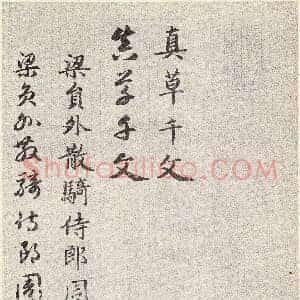 真草千文
真草千文
梁員外散騎侍郎周
梁員外散騎侍郎周
Shufaziliao.com